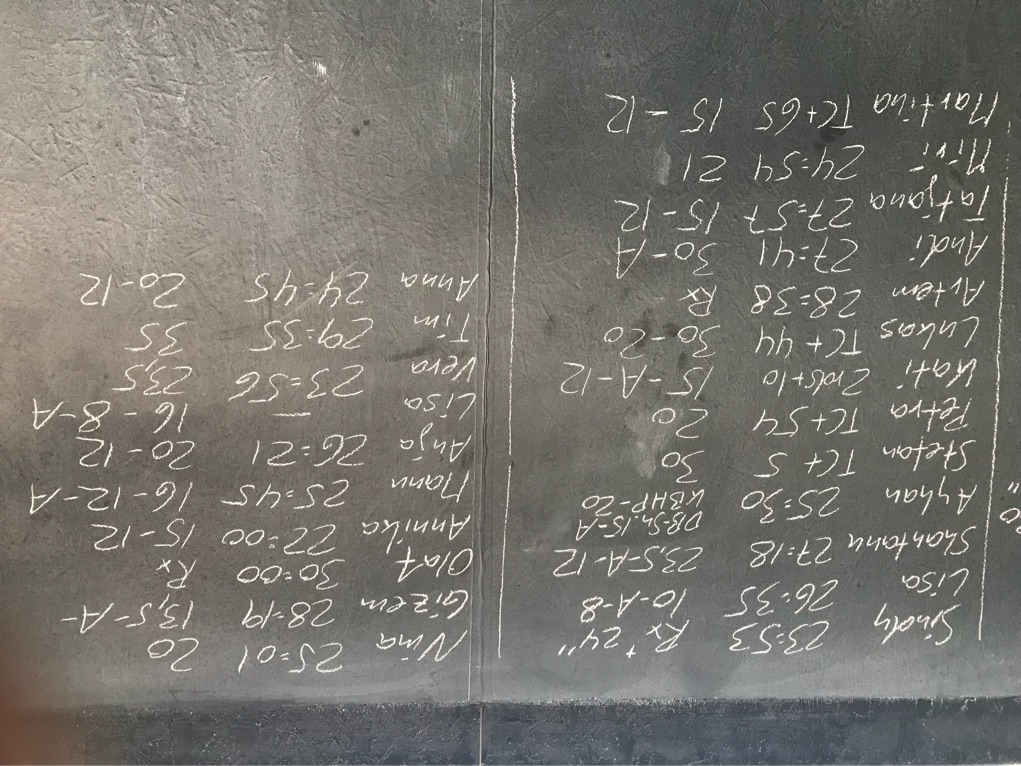 Sindy 23:53 Rx +24"
Lisa 26:35 10-A-8
Shantanu 27:18 23,5-A-12
Ayhan 25:30 DB-Sn.15-A
KBHP-20
Stefan TC+5 30
Petra TC+54 20
Kati 2rds+10 15-A-12
Lukas TC+44 30-20
Artem 28:38 Rx
Andi 27:41 30-A
Tatjana 27:57 15-12
Miri 24:54 21
Martina TC+65 15-12
Nina 25:01 20
Gizem 28:19 13,5-A-
Olaf 30:00 Rx
Annika 22:00 15-12
Manu 25:45 16-12-A
Anja 26:21 20-12
Lisa — 16-8-A
Vera 23:56 23,5
Tim 29:35 35
Anna 24:45 20-12